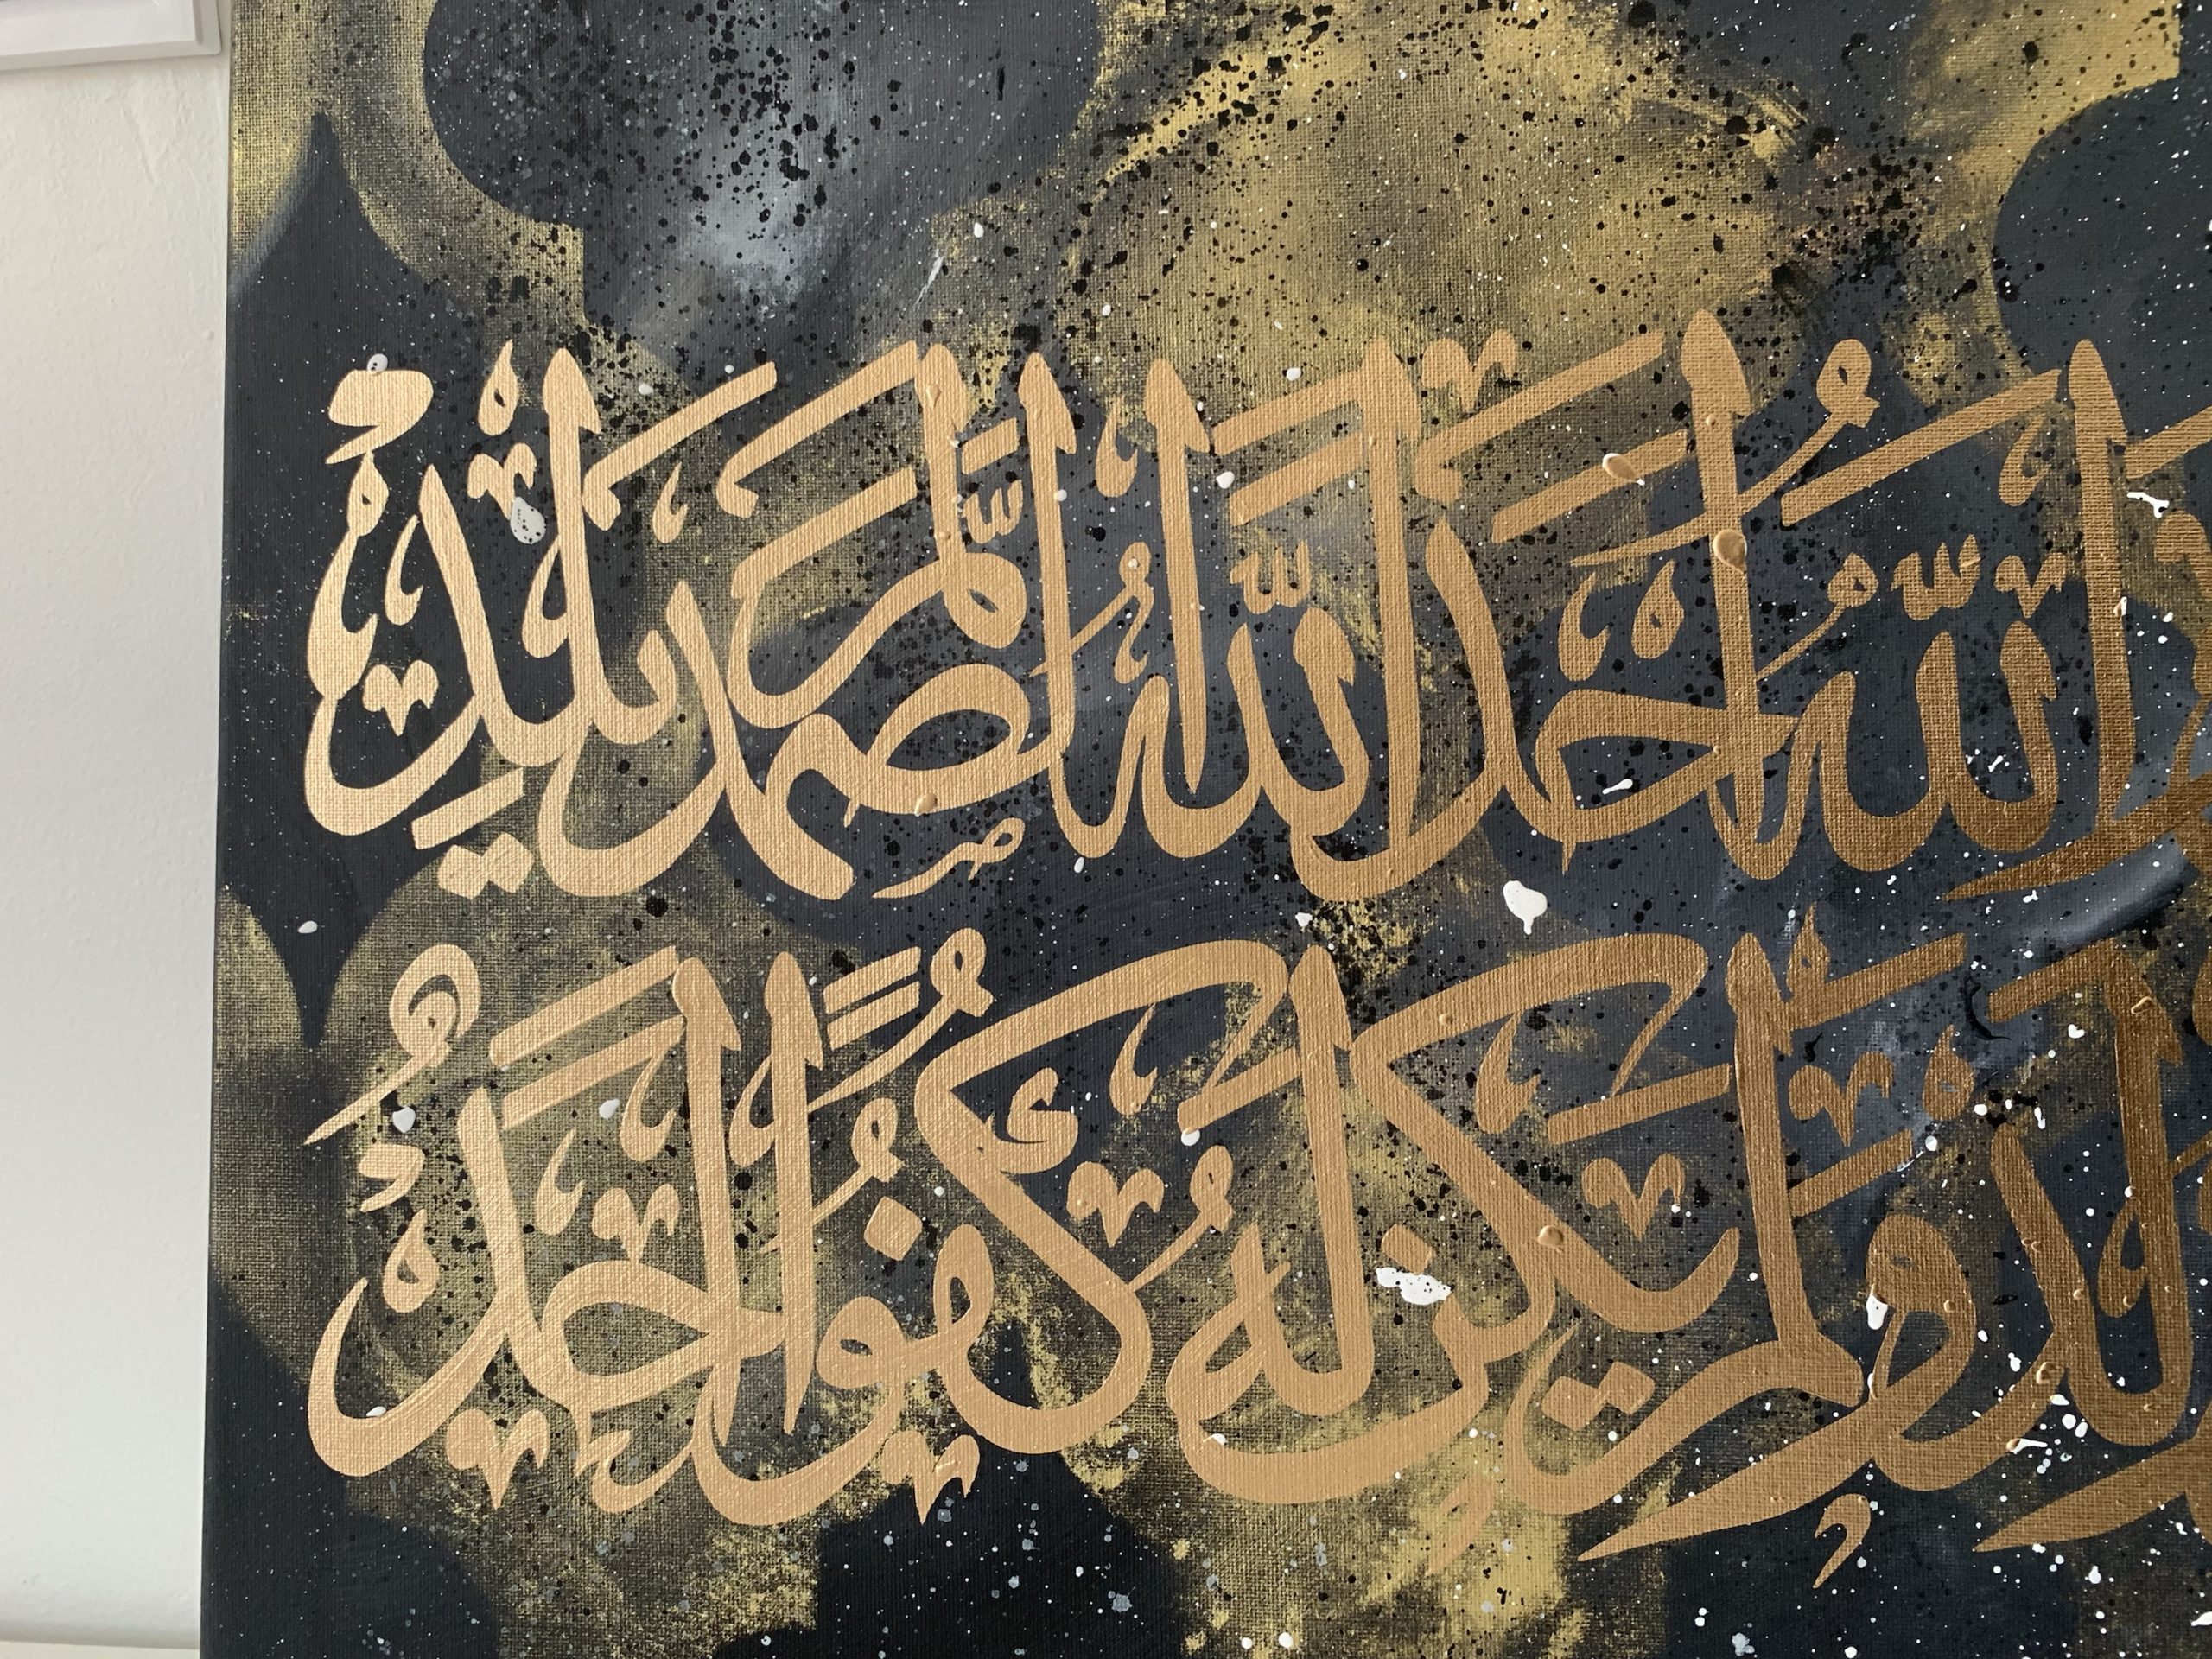 اللَّهُ أَحَدٌ اللَّهُ الصَّمَدُ لَمْ يَلِدْ
وَلَمْ يَكُنْ لَهُ كُفُوًا أَحَدٌ